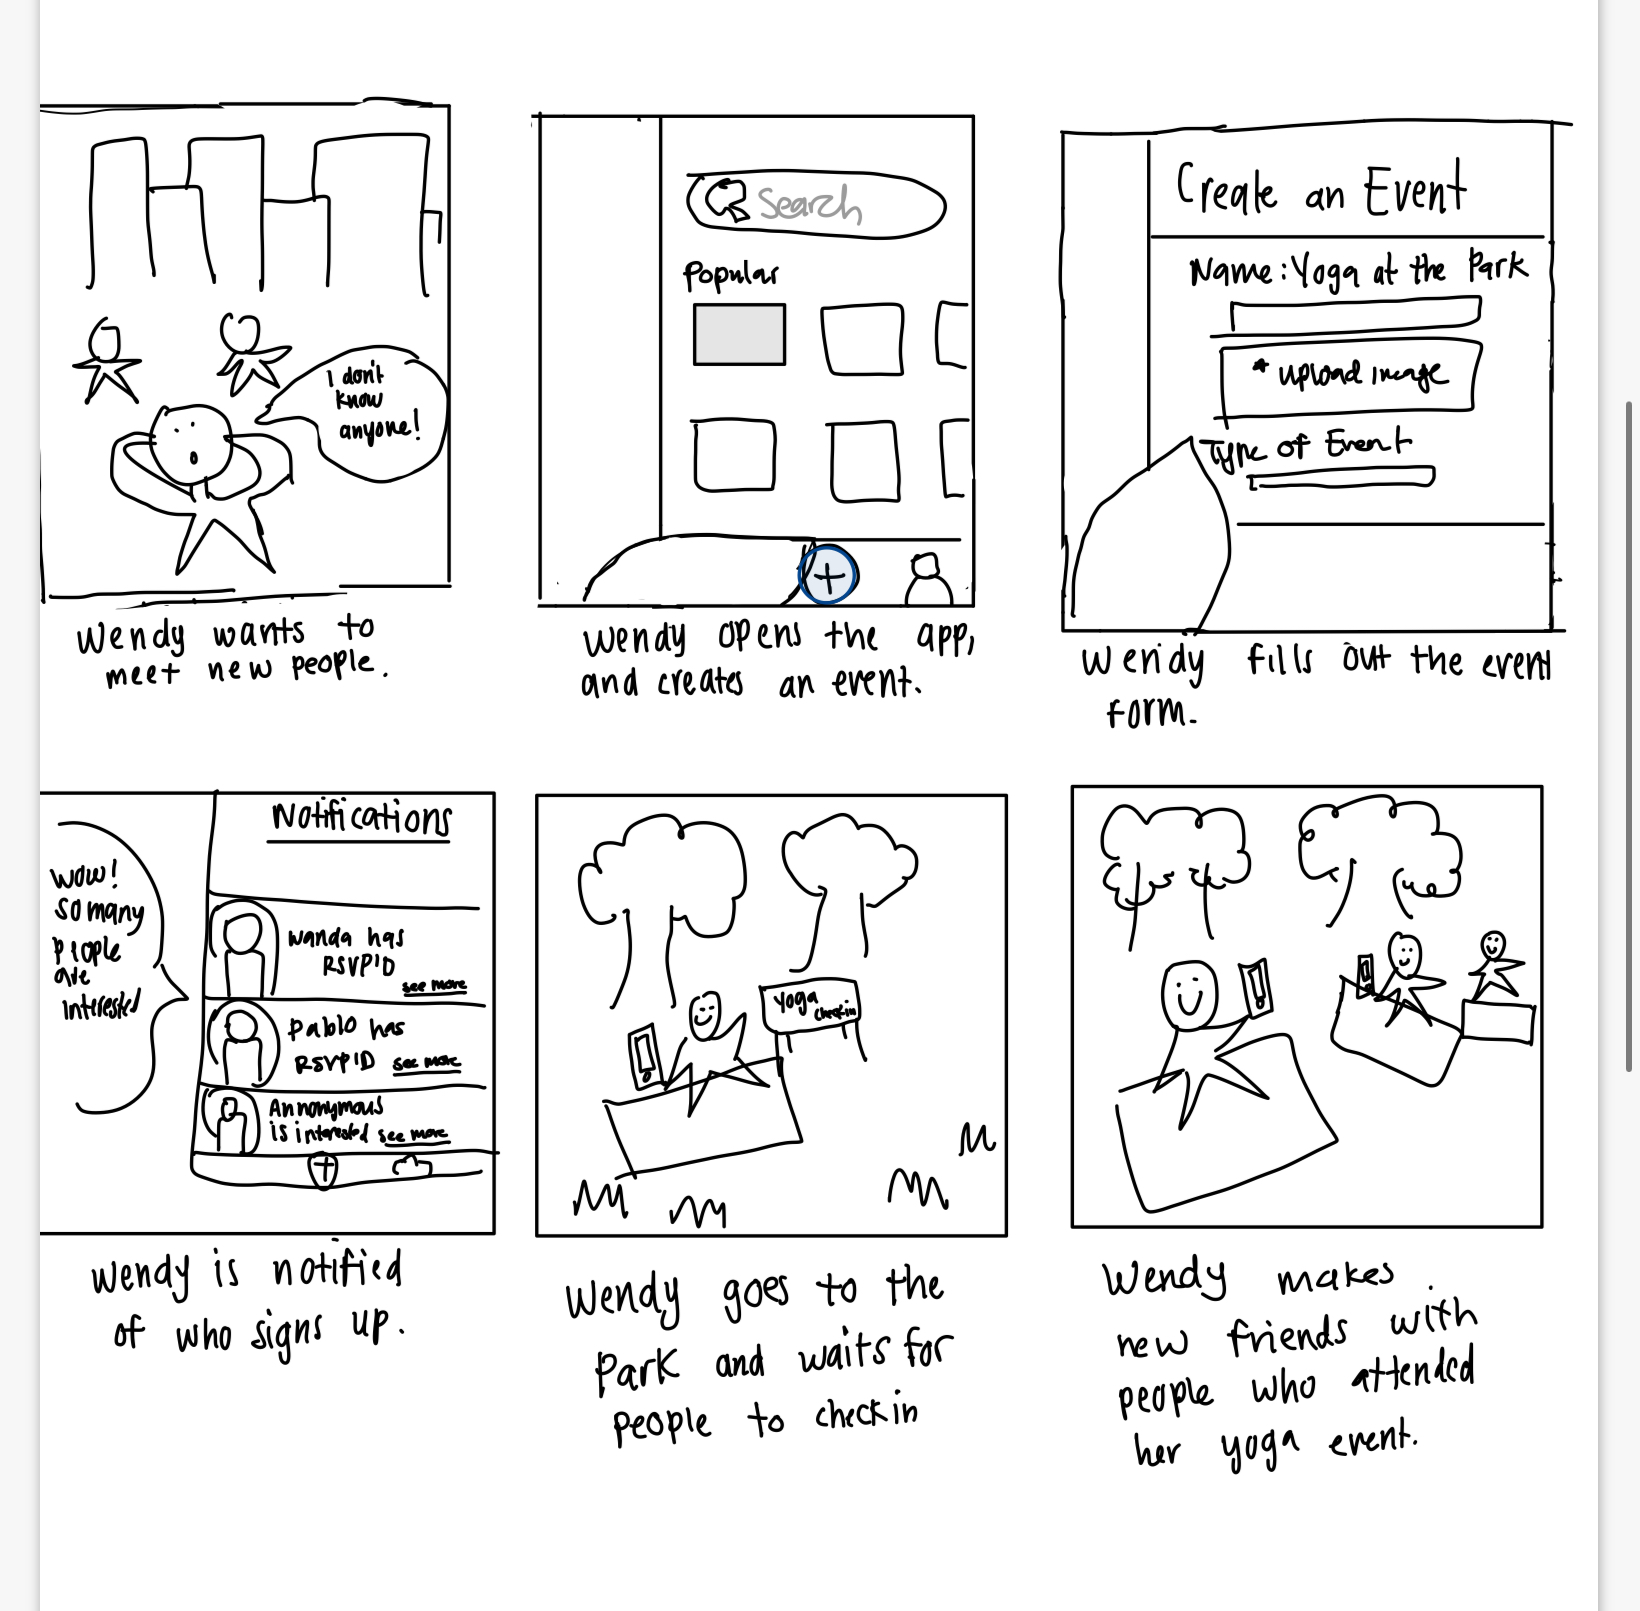 I don't
know
anyone!
Wendy wants to
meet new people.
Search
Popular
Wendy opens the app,
and creates an event.
Create an Event
Name: Yoga at the Park
* upload image
Type of Event
Wendy fills out the event
form.
Notifications
Wow!
So many
people
are
interested
Wanda has
RSVP'D
see more
Pablo has
RSVP'D see more
Annonymous
is interested see more
Wendy is notified
of who signs up.
Yoga
check in
Wendy goes to the
Park and waits for
people to check in
Wendy makes
new friends with
people who attended
her yoga event.